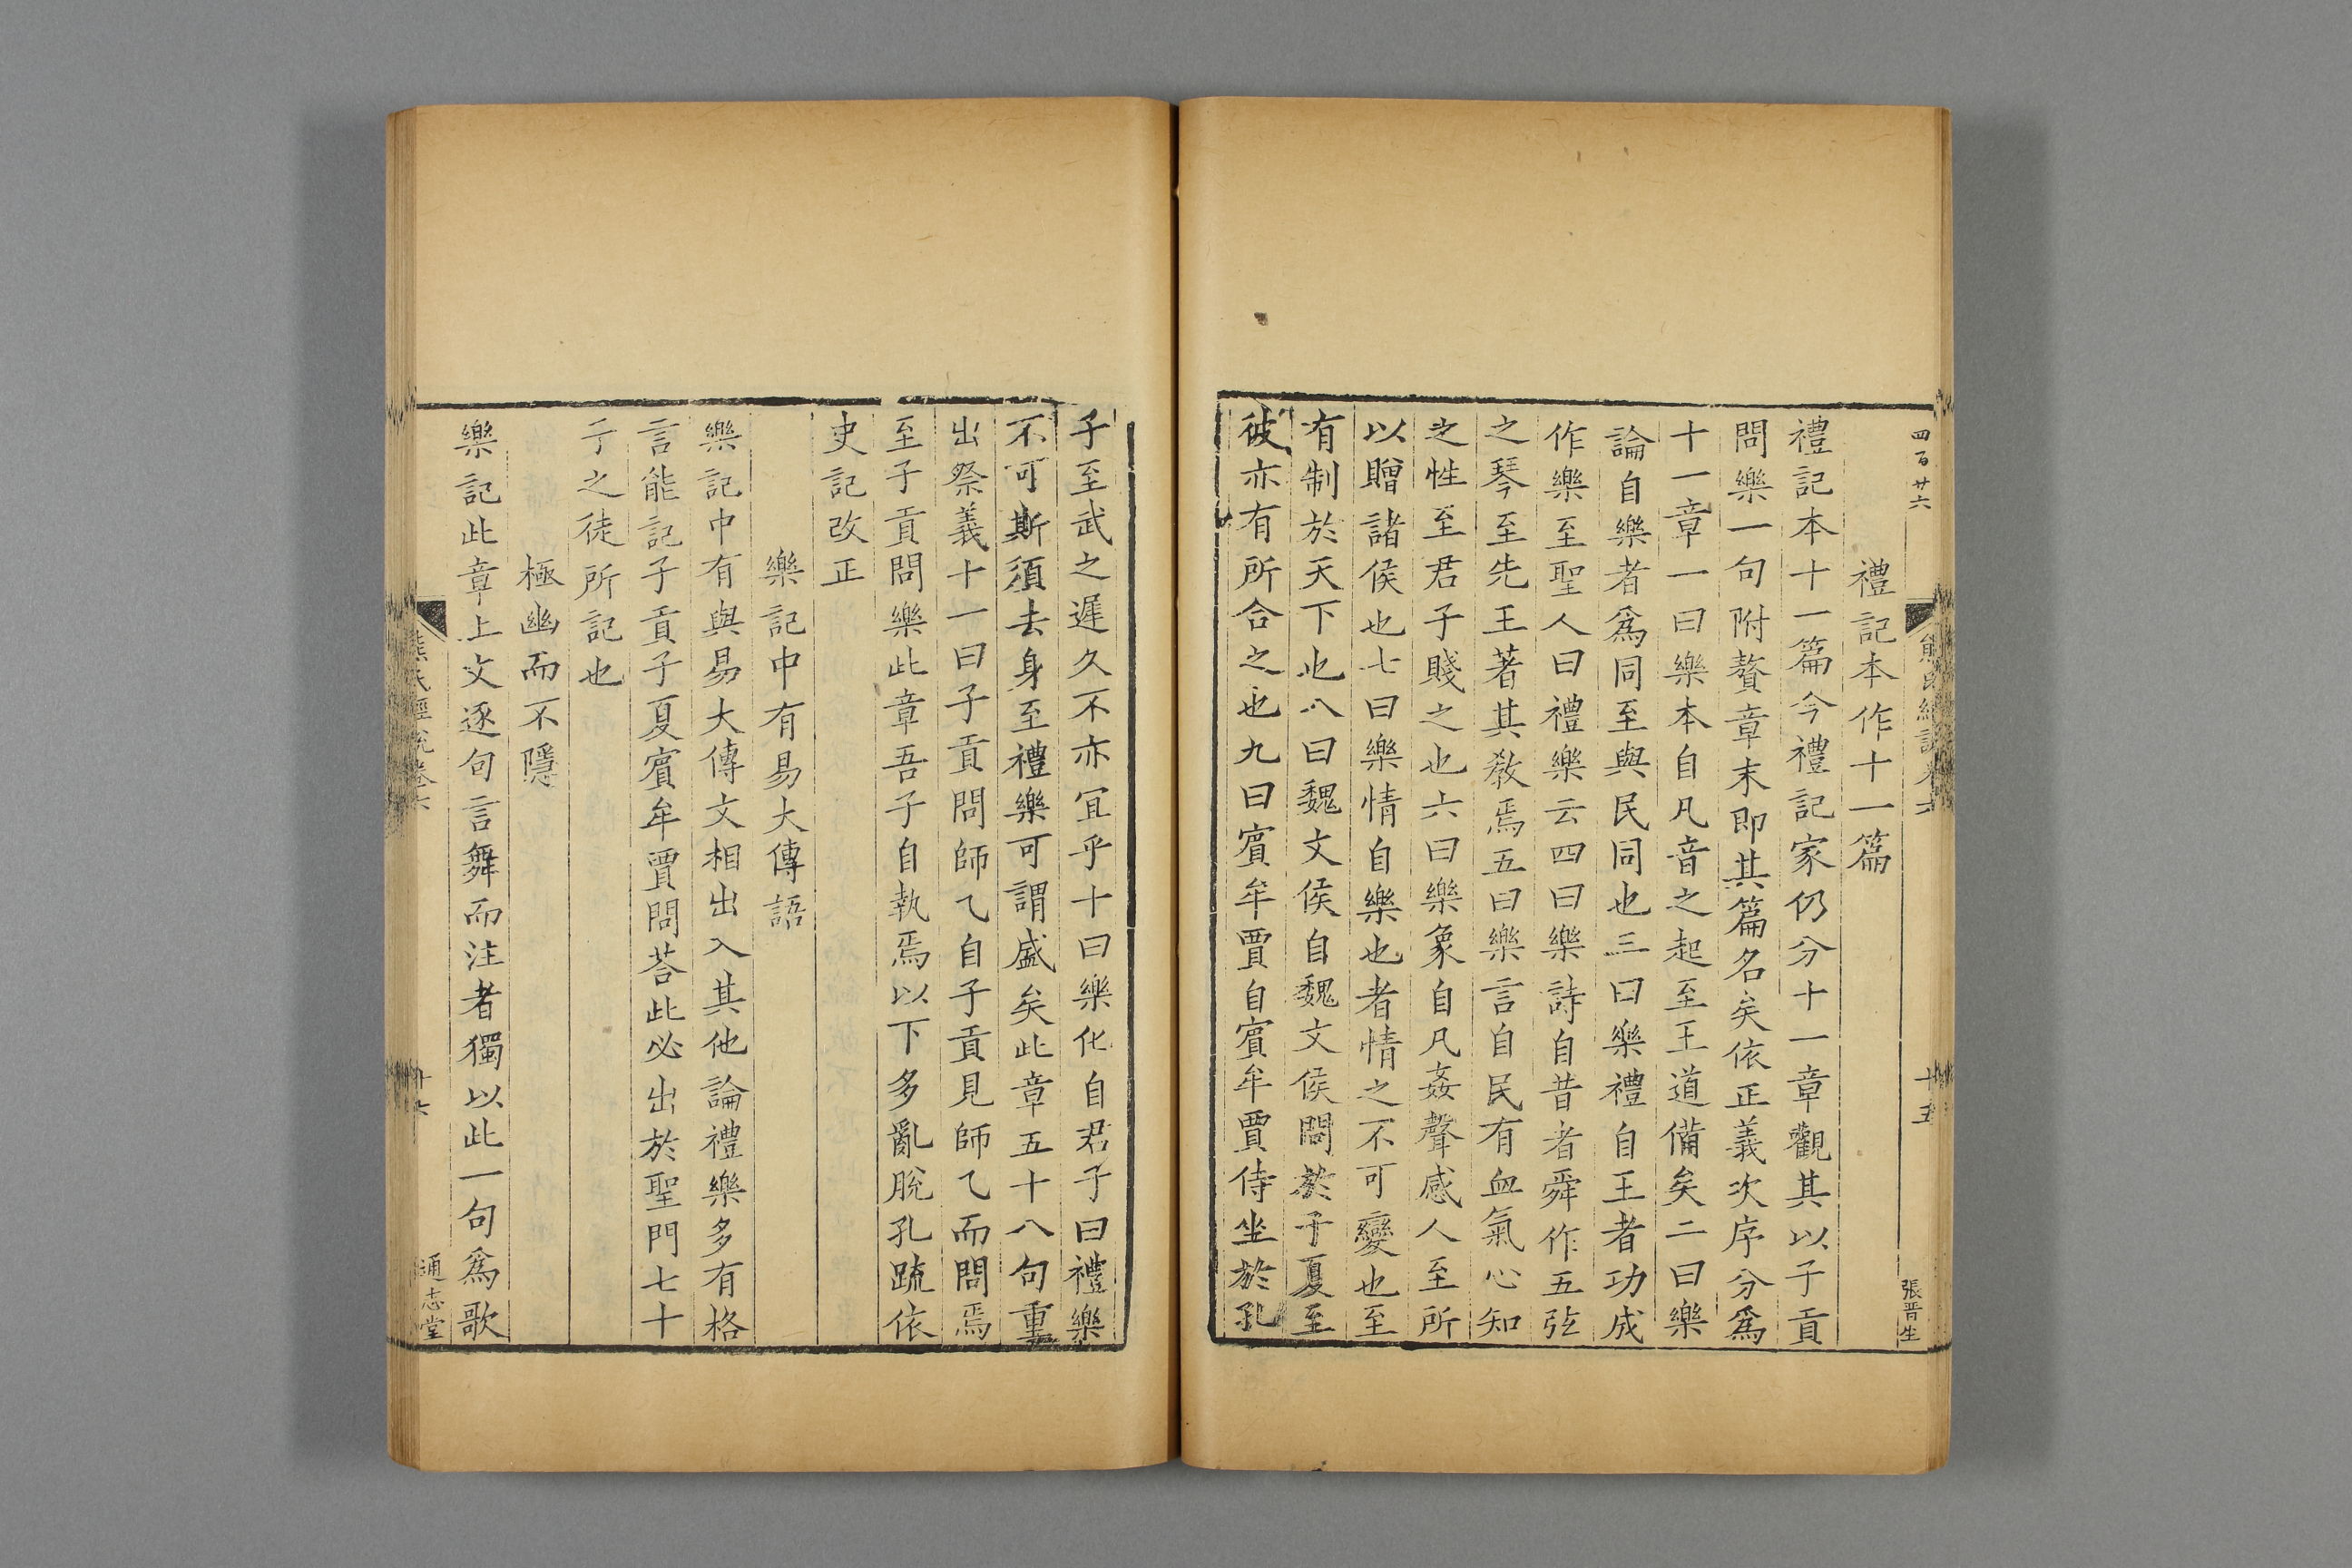 四百廿六
熊氏經說卷六
十五
張晋生
禮記本作十一篇
禮記本十一篇今禮記家仍分十一章觀其以子貢
問樂一句附贅章末即其篇名矣依正義次序分爲
十一章一曰樂本自凡音之起至王道備矣二曰樂
論自樂者爲同至與民同也三曰樂禮自王者功成
作樂至聖人曰禮樂云四曰樂詩自昔者舜作五弦
之琴至先王著其敎焉五曰樂言自民有血氣心知
之性至君子賤之也六曰樂象自凡姦聲感人至所
以贈諸侯也七曰樂情自樂也者情之不可變也至
有制於天下也八曰魏文侯自魏文侯問於子夏至
彼亦有所合之也九曰賓牟賈自賓牟賈侍坐於孔
子至武之遲久不亦宜乎十曰樂化自君子曰禮樂
不可斯須去身至禮樂可謂盛矣此章五十八句重
出祭義十一曰子貢問師乙自子貢見師乙而問焉
至子貢問樂此章吾子自執焉以下多亂脫孔䟽依
史記改正
樂記中有易大傳語
樂記中有與易大傳文相出入其他論禮樂多有格
言能記子貢子夏賓牟賈問荅此必出於聖門七十
子之徒所記也
極幽而不隱
樂記此章上文逐句言舞而注者獨以此一句爲歌
熊氏經說卷六
十六
通志堂